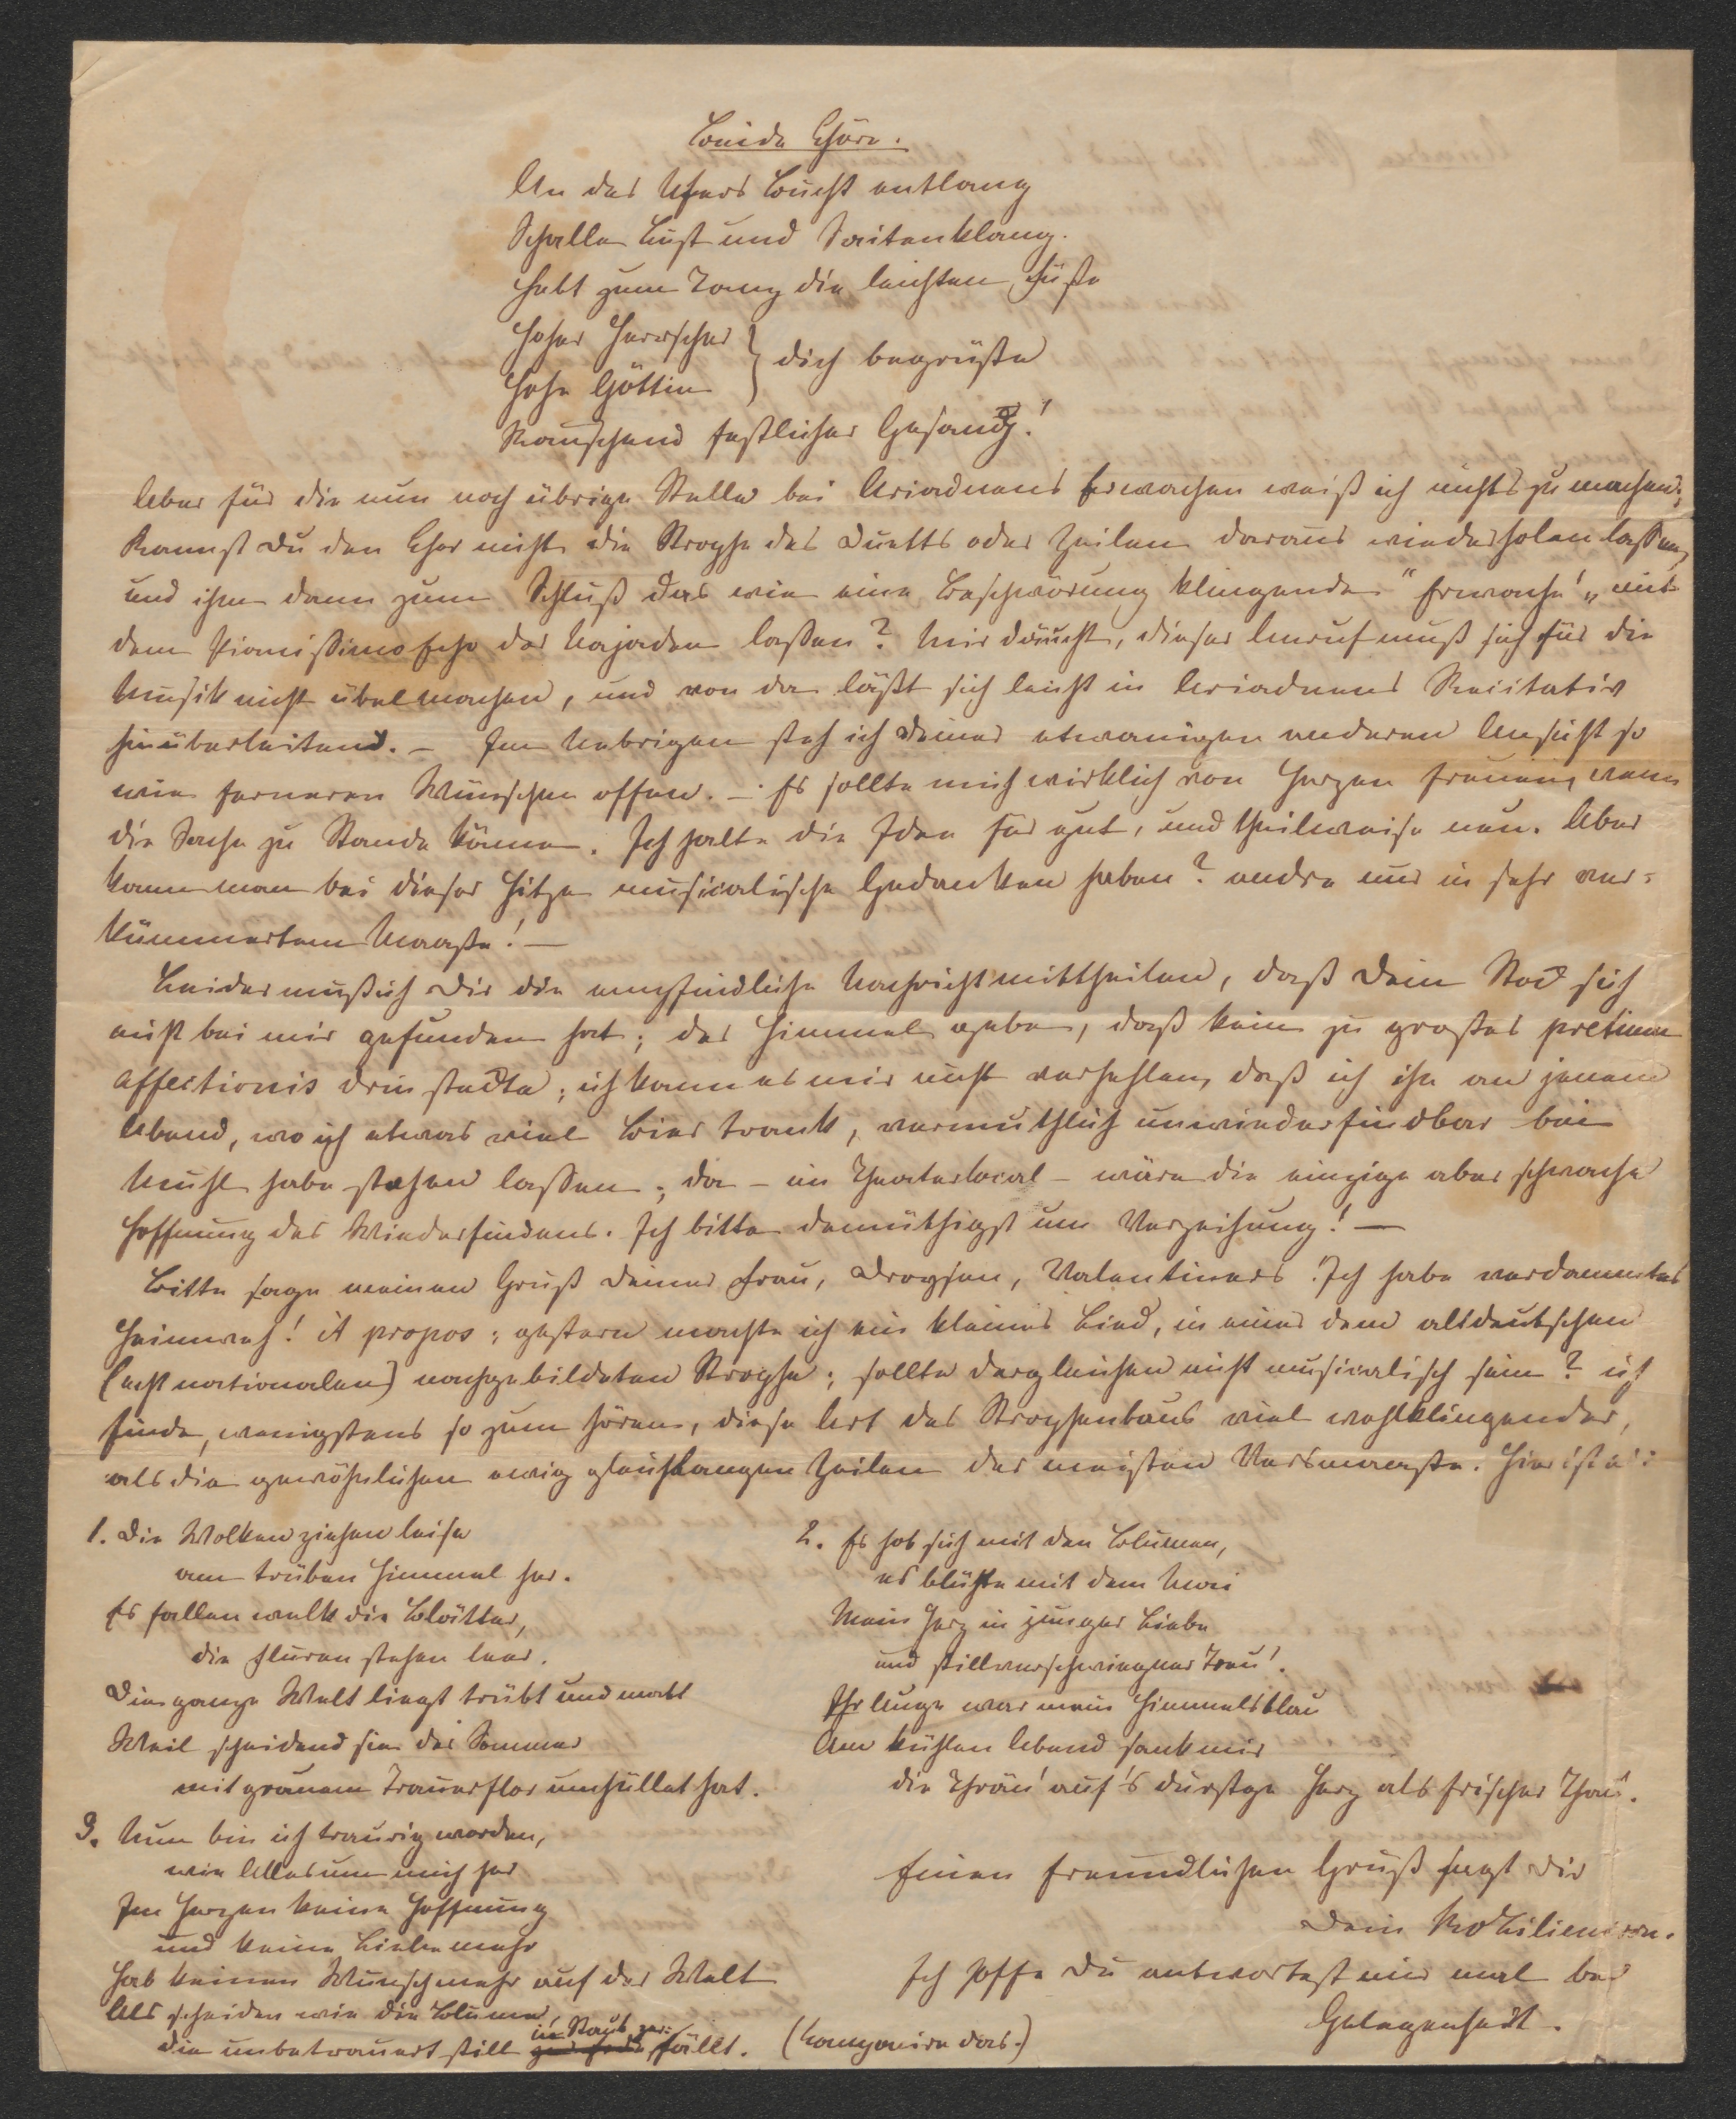 Beide Chöre.
An des Ufers Bucht entlang
Schalle Lust und Saitenklang.
Hebt zum Tanz die leichten Füße
Hoher Herrscher } dich begrüße
Hohe Göttin
Rauschend festlicher Gesang!
Aber für die nun noch übrige Stelle bei Ariadnens Erwachen weiß ich nichts zu machen;
Kannst Du den Chor nicht die Strophe des Duetts oder Zeilen daraus wiederholen lassen,
und ihn dann zum Schluß das wie eine Beschwörung klingende "Erwache!" mit
dem Pianissimo Echo der Najaden lassen? Mir däucht, dieser Anruf muß sich für die
Musik nicht übel machen, und von da läßt sich leicht in Ariadnens Recitativ
hinüberleiten. – Im Uebrigen steh ich Deiner etwanigen anderen Ansicht so
wie ferneren Wünschen offen. – Es sollte mich wirklich von Herzen freuen, wenn
die Sache zu Stande käme. Ich halte die Idee für gut, und theilweise neu. Aber
kann man bei dieser Hitze musicalische Gedanken haben? andre nur in sehr ver-
kümmertem Maaße! –
Leider muß ich Dir die empfindliche Nachricht mittheilen, daß Dein Stock sich
nicht bei mir gefunden hat; der Himmel gebe, daß kein zu großes pretium
affectionis drin steckte; ich kann es mir nicht verhehlen, daß ich ihn an jenem
Abend, wo ich etwas viel Bier trank, vermuthlich unwiederfindbar bei
Muhl habe stehen lassen; da – im Theaterlocal – wäre die einzige aber schwache
Hoffnung des Wiederfindens. Ich bitte demüthigst um Verzeihung! –
Bitte sage meinen Gruß Deiner Frau, Droysen, Valentiners. Ich habe verdammtes
Heimweh! A propos; gestern machte ich ein kleines Lied, in einer dem altdeutschen
(echt nationalen) nachgebildeten Strophe; sollte dergleichen nicht musicalisch sein? ich
finde, wenigstens so zum hören, diese Art des Strophenbaus viel wohlklingender,
als die gewöhnlichen ewig gleichlangen Zeilen der meisten Versmaaße. Hier ist es:
1. Die Wolken ziehen leise
am trüben Himmel her.
Es fallen welk die Blätter,
die Fluren stehen leer.
Die ganze Welt liegt trübt und matt
Weil scheidend sie der Sommer
mit grauem Trauerflor umhüllet hat.
2. Es hob sich mit den Blumen,
es blühte mit dem Mai
Mein Herz in junger Liebe
und stillverschwiegner Treu'.
Ihr Auge war mein Himmelsblau
Am kühlen Abend sank mir
die Thrän' auf's durstge Herz als frischer Thau.
3. Nun bin ich traurig worden,
wie Alles um mich her
Im Herzen keine Hoffnung
und keine Liebe mehr
Hab keinen Wunsch mehr auf der Welt
Als scheiden wie die Blume,
die unbetrauert still in Staub zer-fällt.
(Componire das.)
Einen freundlichen Gruß sagt Dir
Dein
Ich hoffe Du antwortest mir mal bei
Gelegenheit.